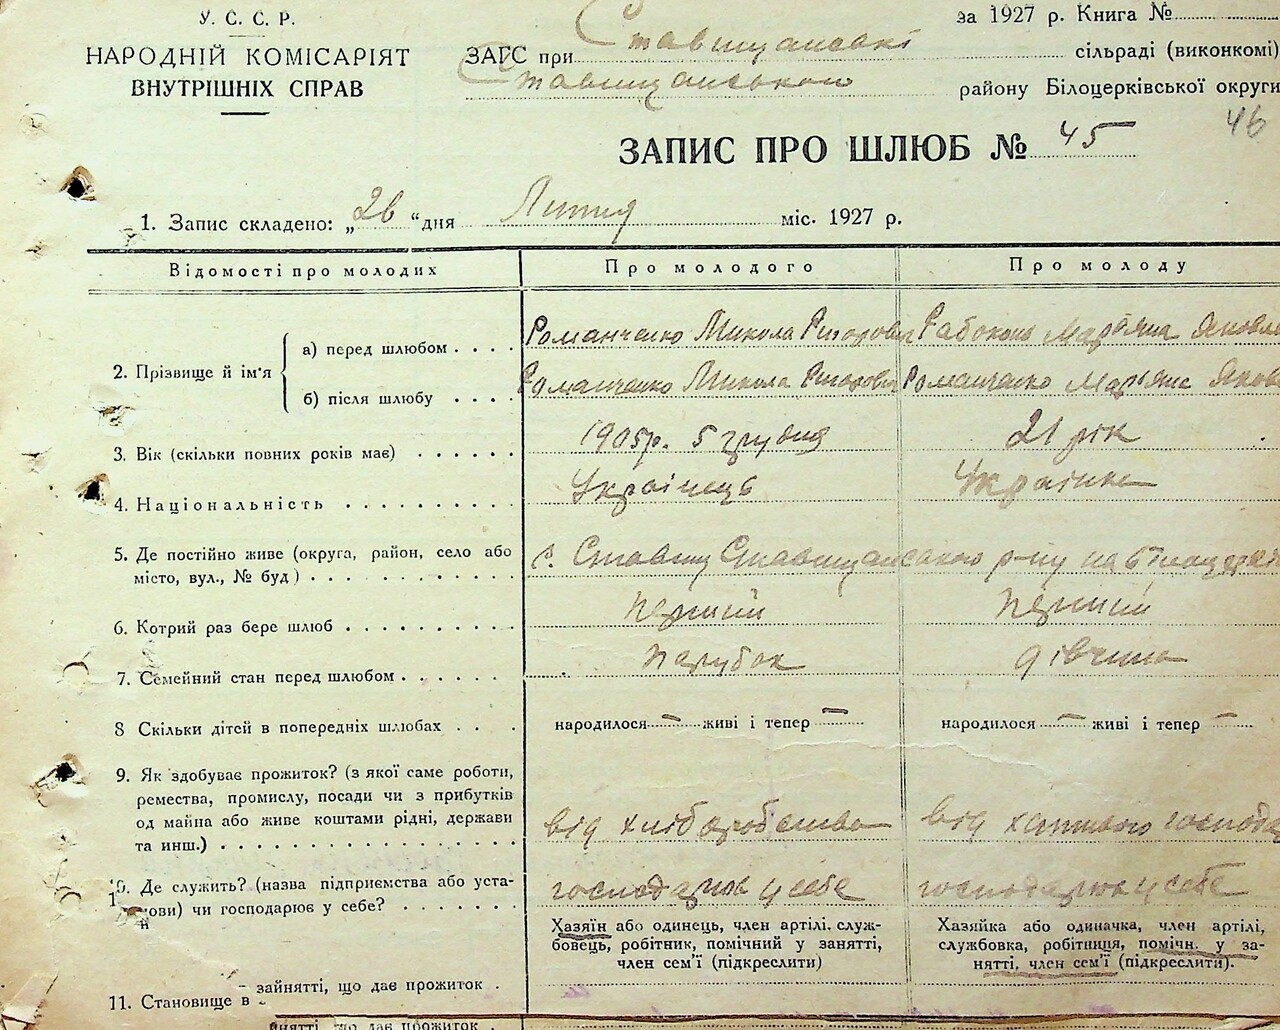 У. С. С. Р.
НАРОДНІЙ КОМІСАРІЯТ
ВНУТРІШНІХ СПРАВ
за 1927 р. Книга №
ЗАГС при Ставищанські сільраді (виконкомі)
Ставищанського району Білоцерківської округи
46
ЗАПИС ПРО ШЛЮБ № 45
1. Запис складено: „26 “ дня Липня міс. 1927 р.
Відомості про молодих Про молодого Про молоду
2. Прізвище й ім'я
а) перед шлюбом . . . . Романченко Микола Григорович Рабоконь Мар'яна Яковл
б) після шлюбу . . . . Романченко Микола Григорович Романченко Мар'яна Яков
3. Вік (скільки повних років має) . . . . . . 1905р. 5 грудня 21 рік
4. Національність . . . . . . . . . Українець Українка
5. Де постійно живе (округа, район, село або
місто, вул., № буд) . . . . . . . . . . с. Ставищ Ставищанського р-ну на Білоцерків
6. Котрий раз бере шлюб . . . . . . . . . Перший Перший
7. Семейний стан перед шлюбом . . . . . . Парубок дівчина
8 Скільки дітей в попередніх шлюбах . . . народилося — живі і тепер — народилося — живі і тепер —
9. Як здобуває прожиток? (з якої саме роботи,
ремества, промислу, посади чи з прибутків
од майна або живе коштами рідні, держави
та инш.) . . . . . . . . . . . . . . . . від хліборобства від хатнього господа
10. Де служить? (назва підприємства або уста-
нови) чи господарює у себе? . . . . . . . господарює у себе господарює у себе
Хазяїн або одинець, член артілі. служ-
бовець, робітник, помічний у занятті,
член сем'ї (підкреслити)
Хазяйка або одиначка, член артілі,
службовка, робітниця, помічн. у за-
нятті, член сем'ї (підкреслити).
11. Становище в - зайнятті, що дає прожиток .
йнятті, що дає прожиток .